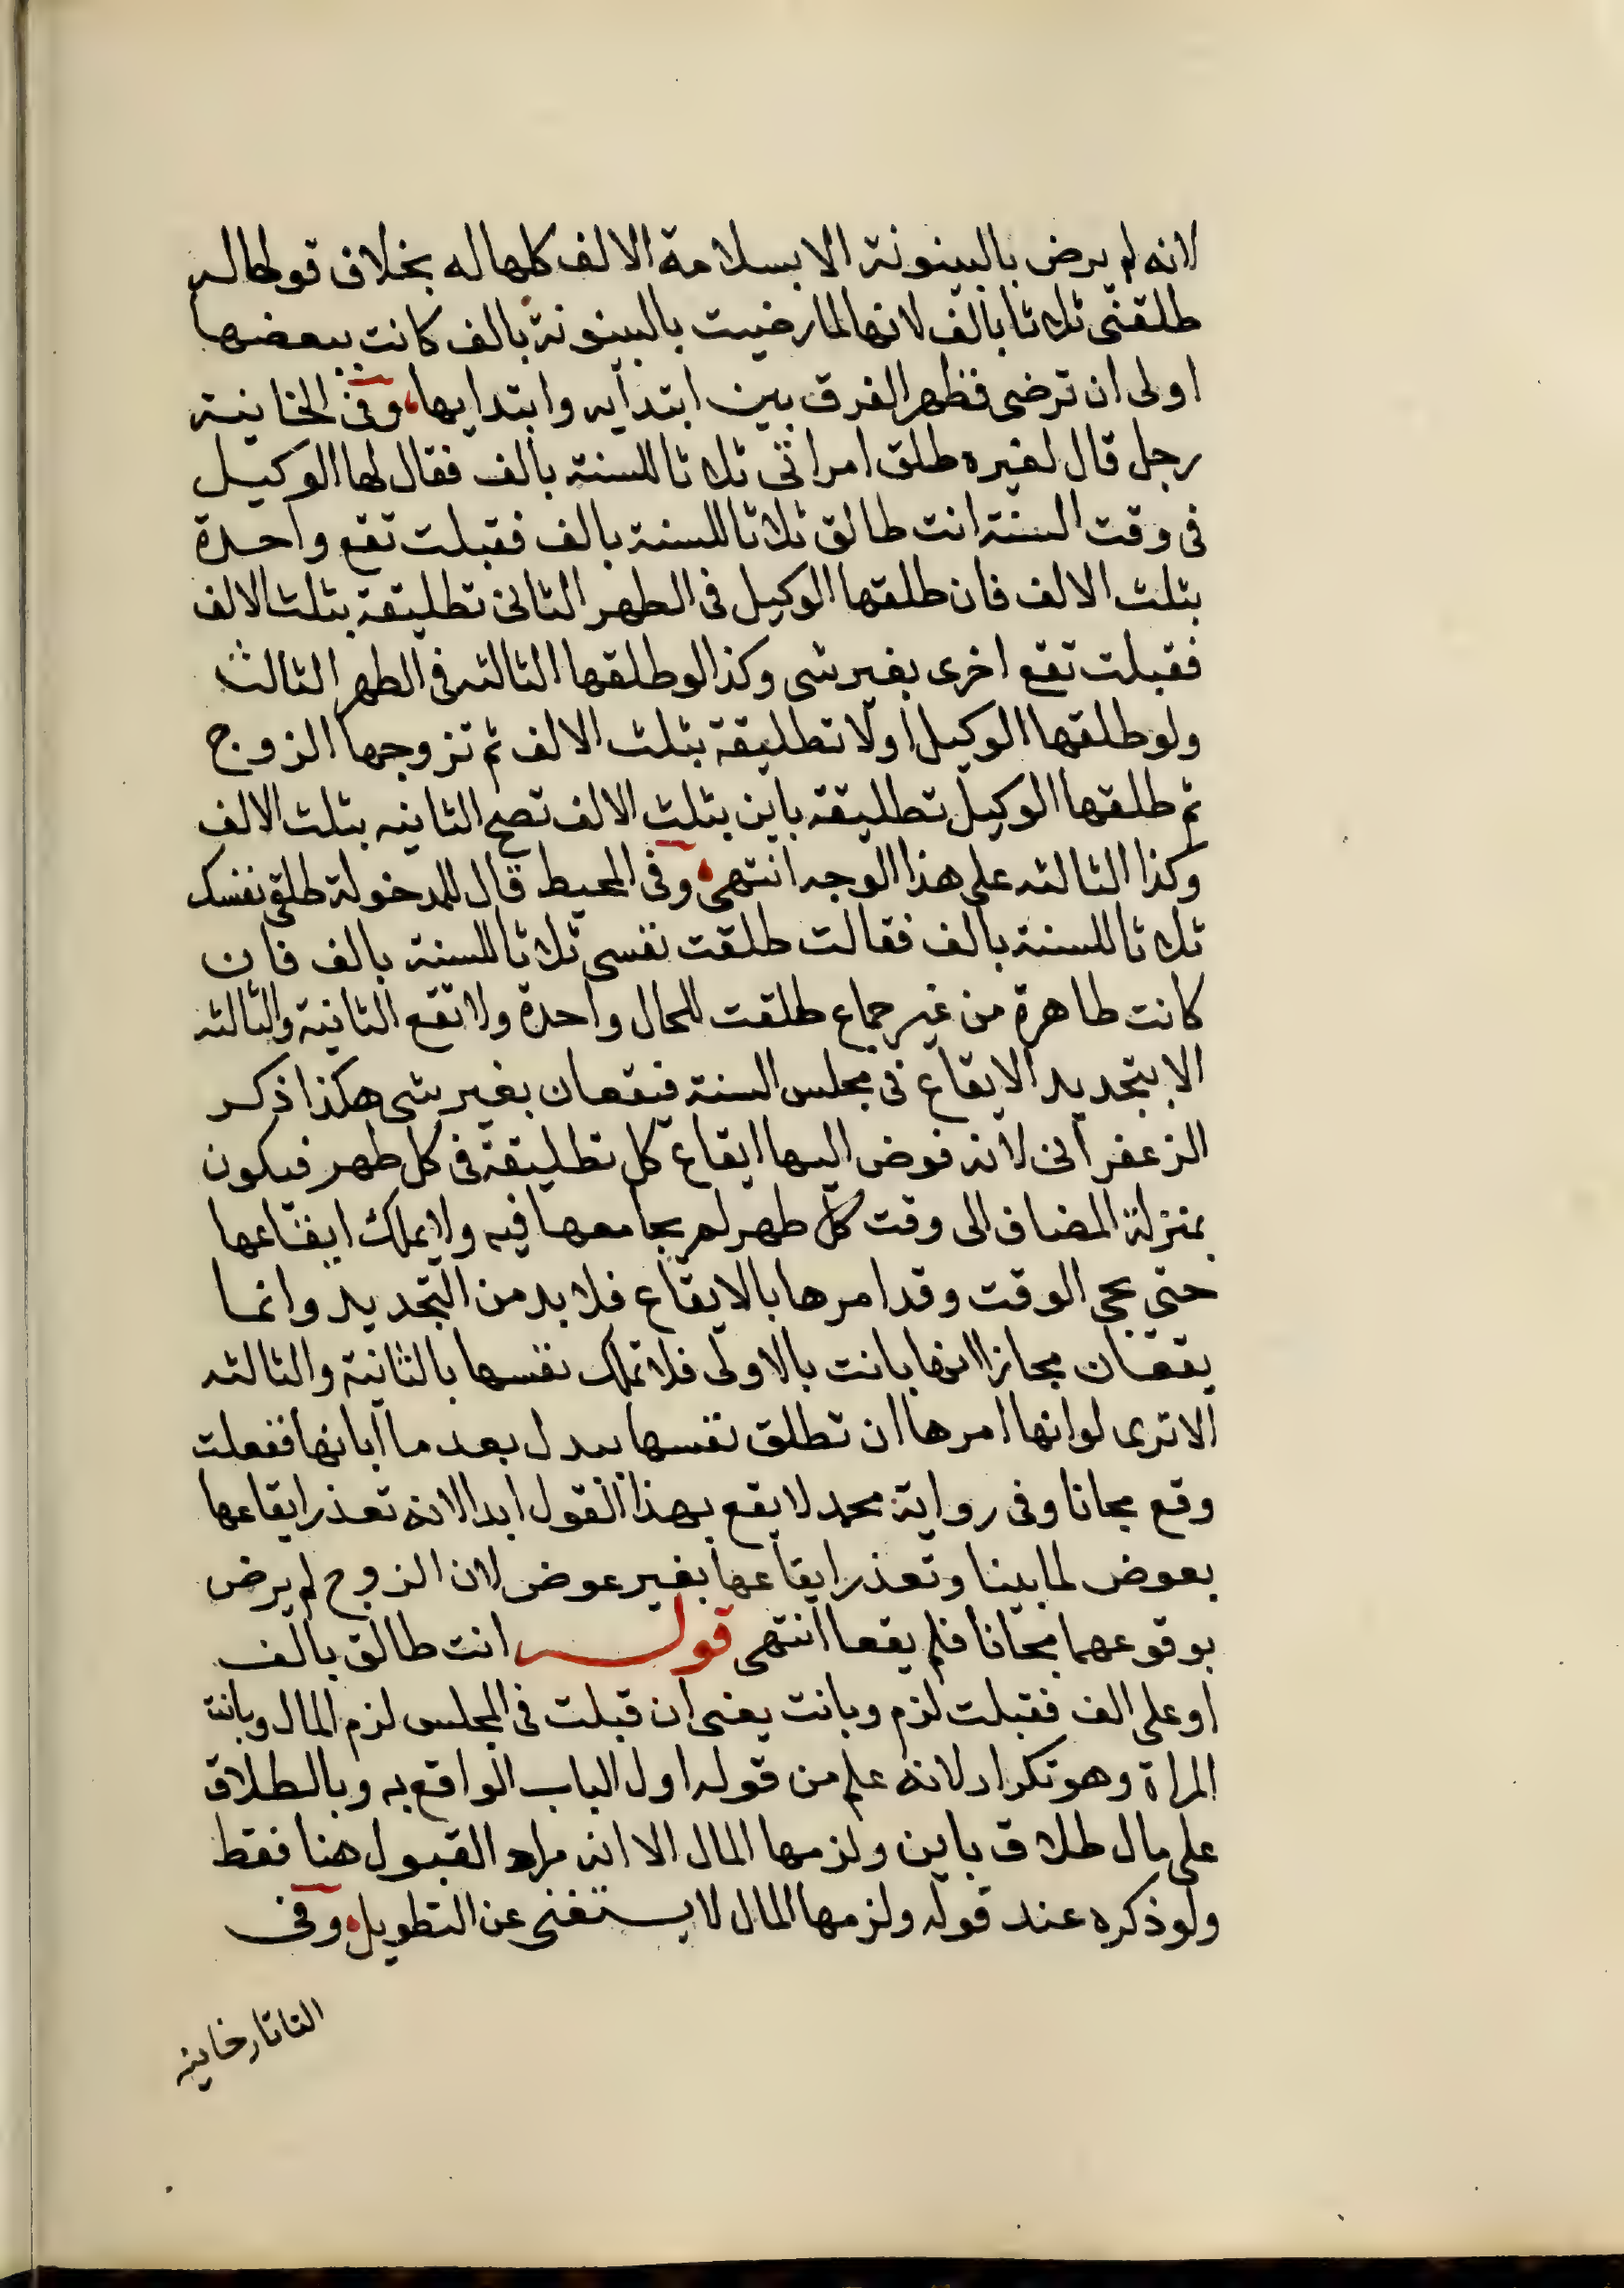 لانه لم يرض بالبينونة الا بسلامة الالف كلها له بخلاف قولها له
طلقني ثلاثا بالف لانها لما رضيت بالبينونة بالف كانت ببعضها
اولى ان ترضى فظهر الفرق بين ابتدايه وابتدايها، وفي الخانية
رجل قال لغيره طلق امراتي ثلاثا للسنة بالف فقال لها الوكيل
في وقت السنة انت طالق ثلاثا للسنة بالف فقبلت تقع واحدة
بثلث الالف فان طلقها الوكيل في الطهر الثاني تطليقة بثلث الالف
فقبلت تقع اخرى بغير شي وكذا لو طلقها الثالثه في الطهر الثالث
ولو طلقها الوكيل اولا تطليقة بثلث الالف ثم تزوجها الزوج
ثم طلقها الوكيل تطليقة باين بثلث الالف تصح الثانيه بثلث الالف
وكذا الثالثه على هذا الوجه انتهى، وفي المحيط قال للمدخولة طلقي نفسك
ثلاثا للسنة بالف فقالت طلقت نفسي ثلاثا للسنة بالف فان
كانت طاهرة من غير جماع طلقت للحال واحدة ولا تقع الثانية والثالثه
الا بتجديد الايقاع في مجلس السنة فيقعان بغير شي هكذا ذكر
الزعفراني لانه فوض اليها ايقاع كل تطليقة في كل طهر فيكون
بمنزلة المضاف الى وقت كل طهر لم يجامعها فيه ولا يملك ايقاعها
حتى يجي الوقت وقد امرها بالايقاع فلا بد من التجديد وانما
يقعان مجازا انها بانت بالاولى فلا تملك نفسها بالثانية والثالثه
الا ترى لو انها امرها ان تطلق نفسها ببدل بعد ما ابانها ففعلت
وقع مجانا وفي رواية محمد لا يقع بهذا القول ابدا لانه تعذر ايقاعها
بعوض لما بينا وتعذر ايقاعها بغير عوض لان الزوج لم يرض
بوقوعهما مجانا فلم يقعا انتهى قوله انت طالق بالف
او على الف فقبلت لزم وبانت يعني ان قبلت في المجلس لزم المال وبانت
المراة وهو تكرار لانه علم من قوله اول الباب الواقع به وبالطلاق
على مال طلاق باين ولزمها المال الا انه مراد القبول هنا فقط
ولو ذكره عند قوله ولزمها المال لا يستغنى عن التطويل، وفي
التاتارخانيه